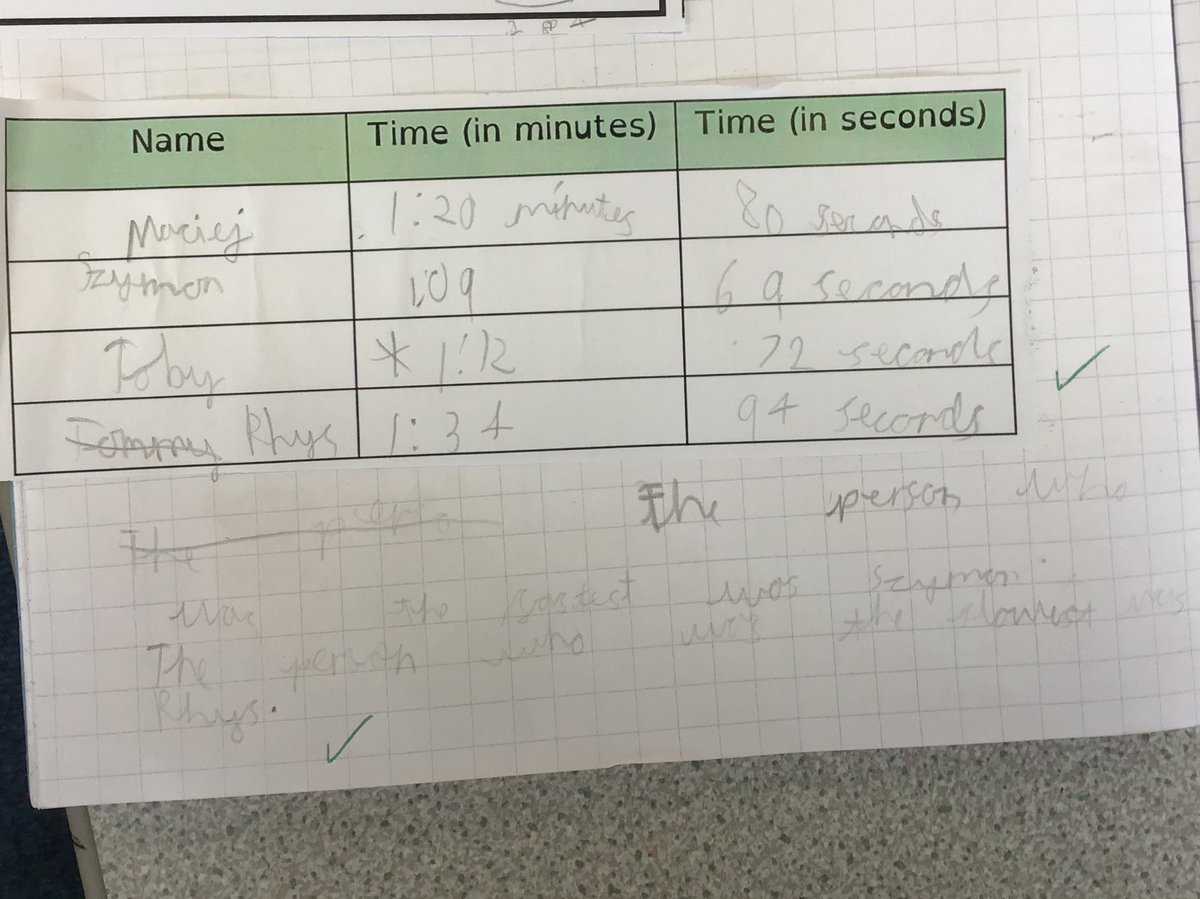 Name Time (in minutes) Time (in seconds)
Maciej 1:20 minutes 80 seconds
Szymon 1:09 69 seconds
Toby * 1:12 72 seconds
Tommy Rhys 1:34 94 seconds
The person who
The
was the fastest was Szymon.
The person who was the slowest was
Rhys.